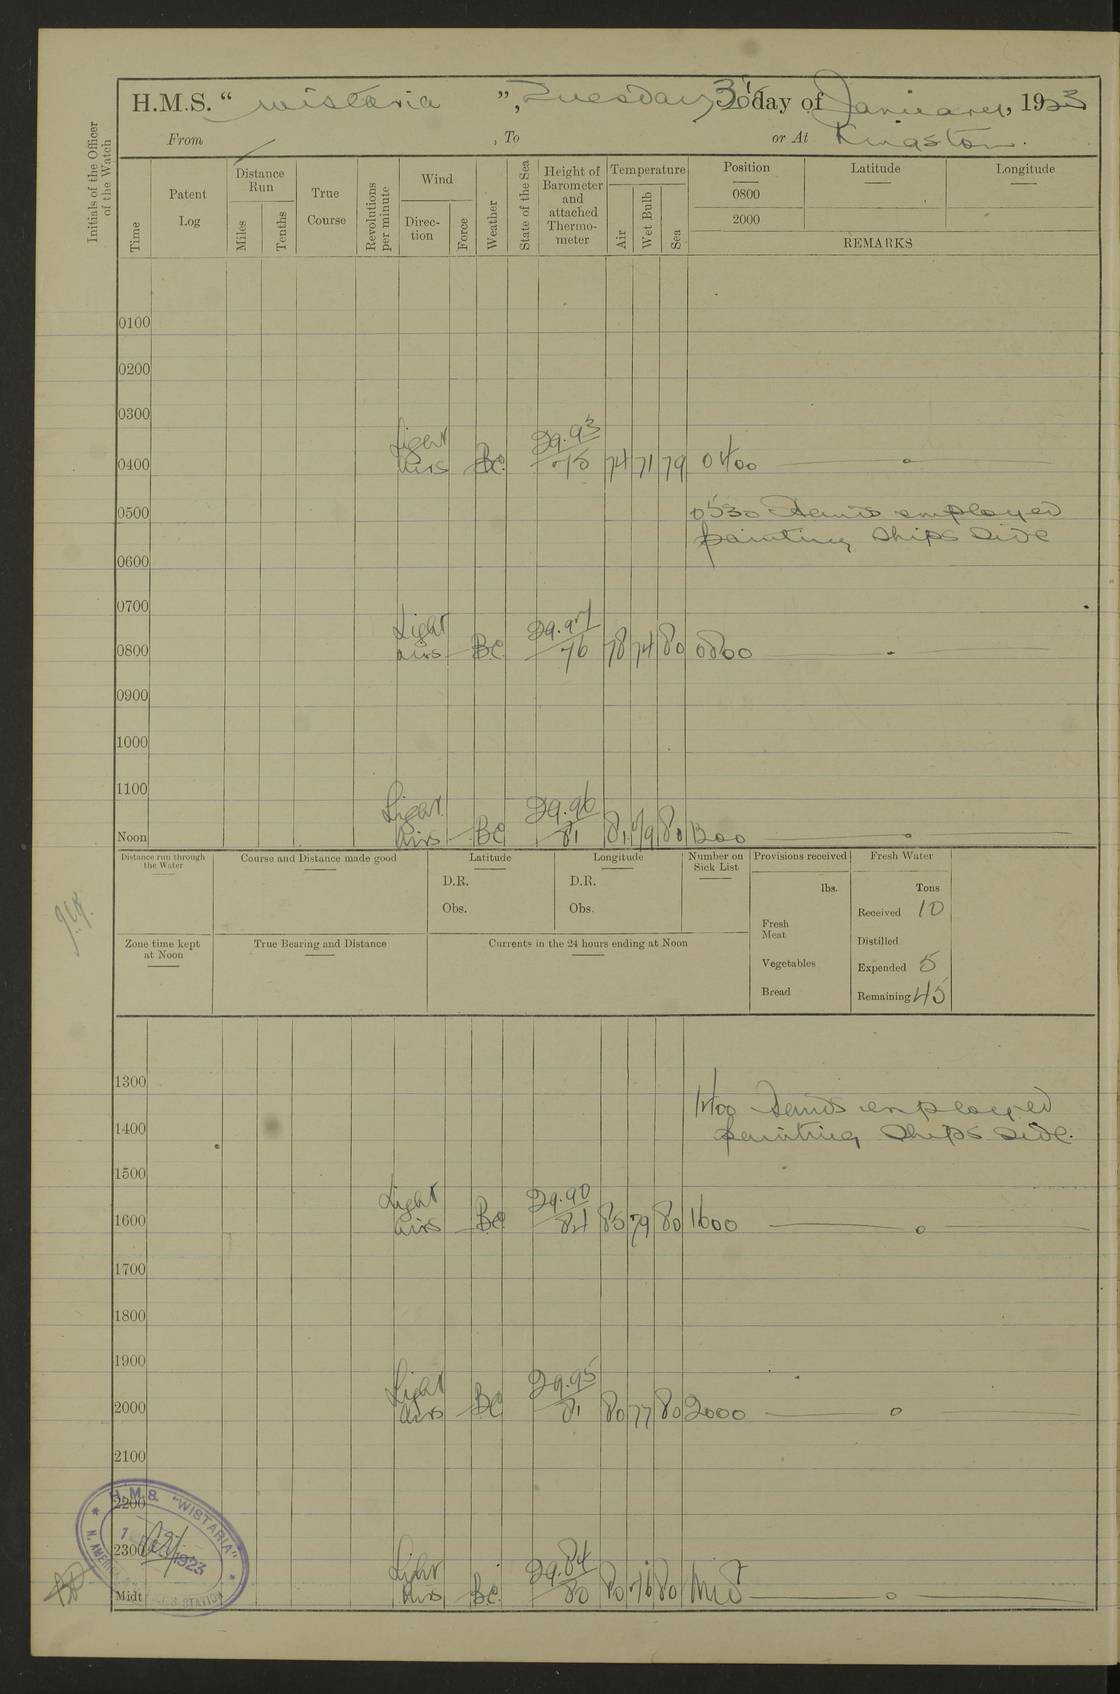 H.M.S. “ Wistaria ”, Tuesday 30th day of January, 1923
From , To or At Kingston.
Initials of the Officer of the Watch
Time
Patent Log
Distance Run
Miles
Tenths
True Course
Revolutions per minute
Wind
Direction
Force
Weather
State of the Sea
Height of Barometer and attached Thermometer
Temperature
Air
Wet Bulb
Sea
Position
0800
2000
Latitude
Longitude
REMARKS
0100
0200
0300
0400 Light airs BC 29.93 75 74 71 79 0400
0500 0530 Hands employed
painting ships side
0600
0700
0800 Light airs BC 29.97 76 78 74 80 0800
0900
1000
1100
Noon Light airs BC 29.96 81 81 79 80 1200
Distance run through the Water
Course and Distance made good
Latitude
D.R.
Obs.
Longitude
D.R.
Obs.
Number on Sick List
Provisions received
lbs.
Fresh Meat
Vegetables
Bread
Fresh Water
Tons
Received 10
Distilled
Expended 5
Remaining 45
Zone time kept at Noon
True Bearing and Distance
Currents in the 24 hours ending at Noon
1300
1400 1400 Hands employed
painting ships side.
1500
1600 Light airs BC 29.90 84 85 79 80 1600
1700
1800
1900
2000 Light airs BC 29.95 81 80 77 80 2000
2100
2200
2300
Midt Light airs BC 29.84 80 80 76 80 Midt
H.M.S. "WISTARIA"
1923